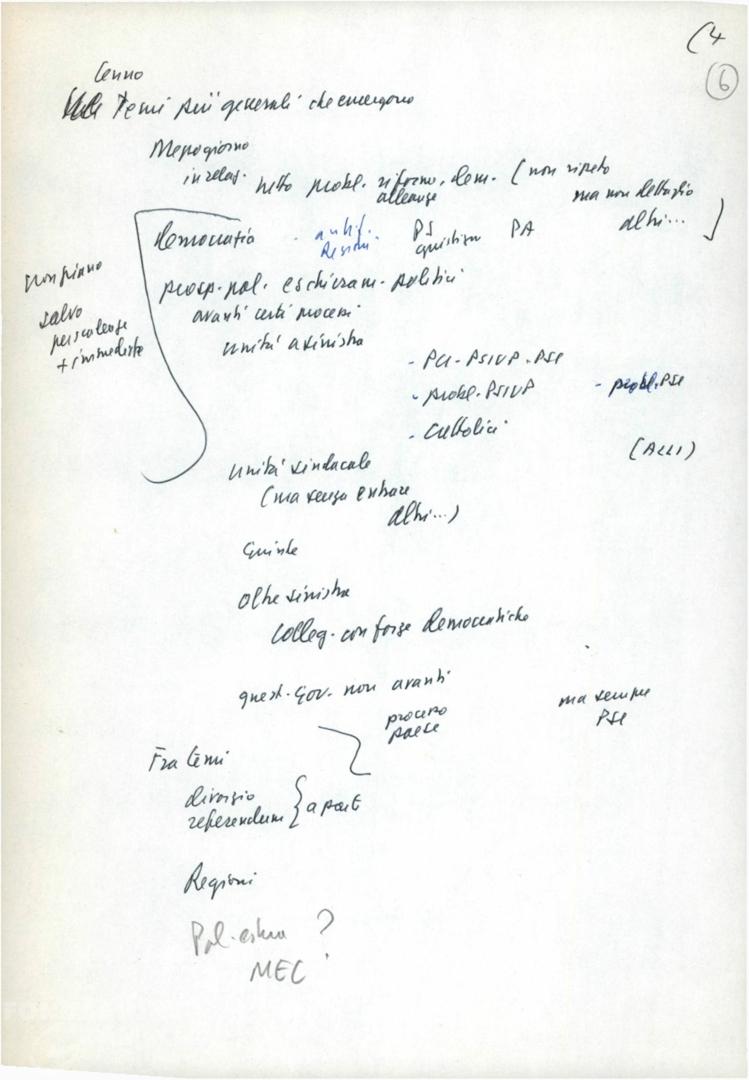 (4
6
Cenno
Temi più generali che emergono
Mezzogiorno
in relaz. tutto probl. riforme, dem. (non ripeto
alleanze ma non dettaglio
altri...
democratia - antif. PS PA
Regioni questione
prosp. pol. e schieram. politici
avanti certi processi
unità a sinistra
salvo
più scadenze
+ immediate
- PCI - PSIUP - PSI
- probl. PSIUP - probl. PSI
- Cattolici
(ACLI)
unità sindacale
(ma senza entrare
altri...)
Giunte
Oltre sinistra
Colleg. con forze democratiche
quest. Gov. non avanti ma sempre
processo PSI
paese
Fra temi
divorzio
referendum } a parte
Regioni
Pol. estera ?
MEC